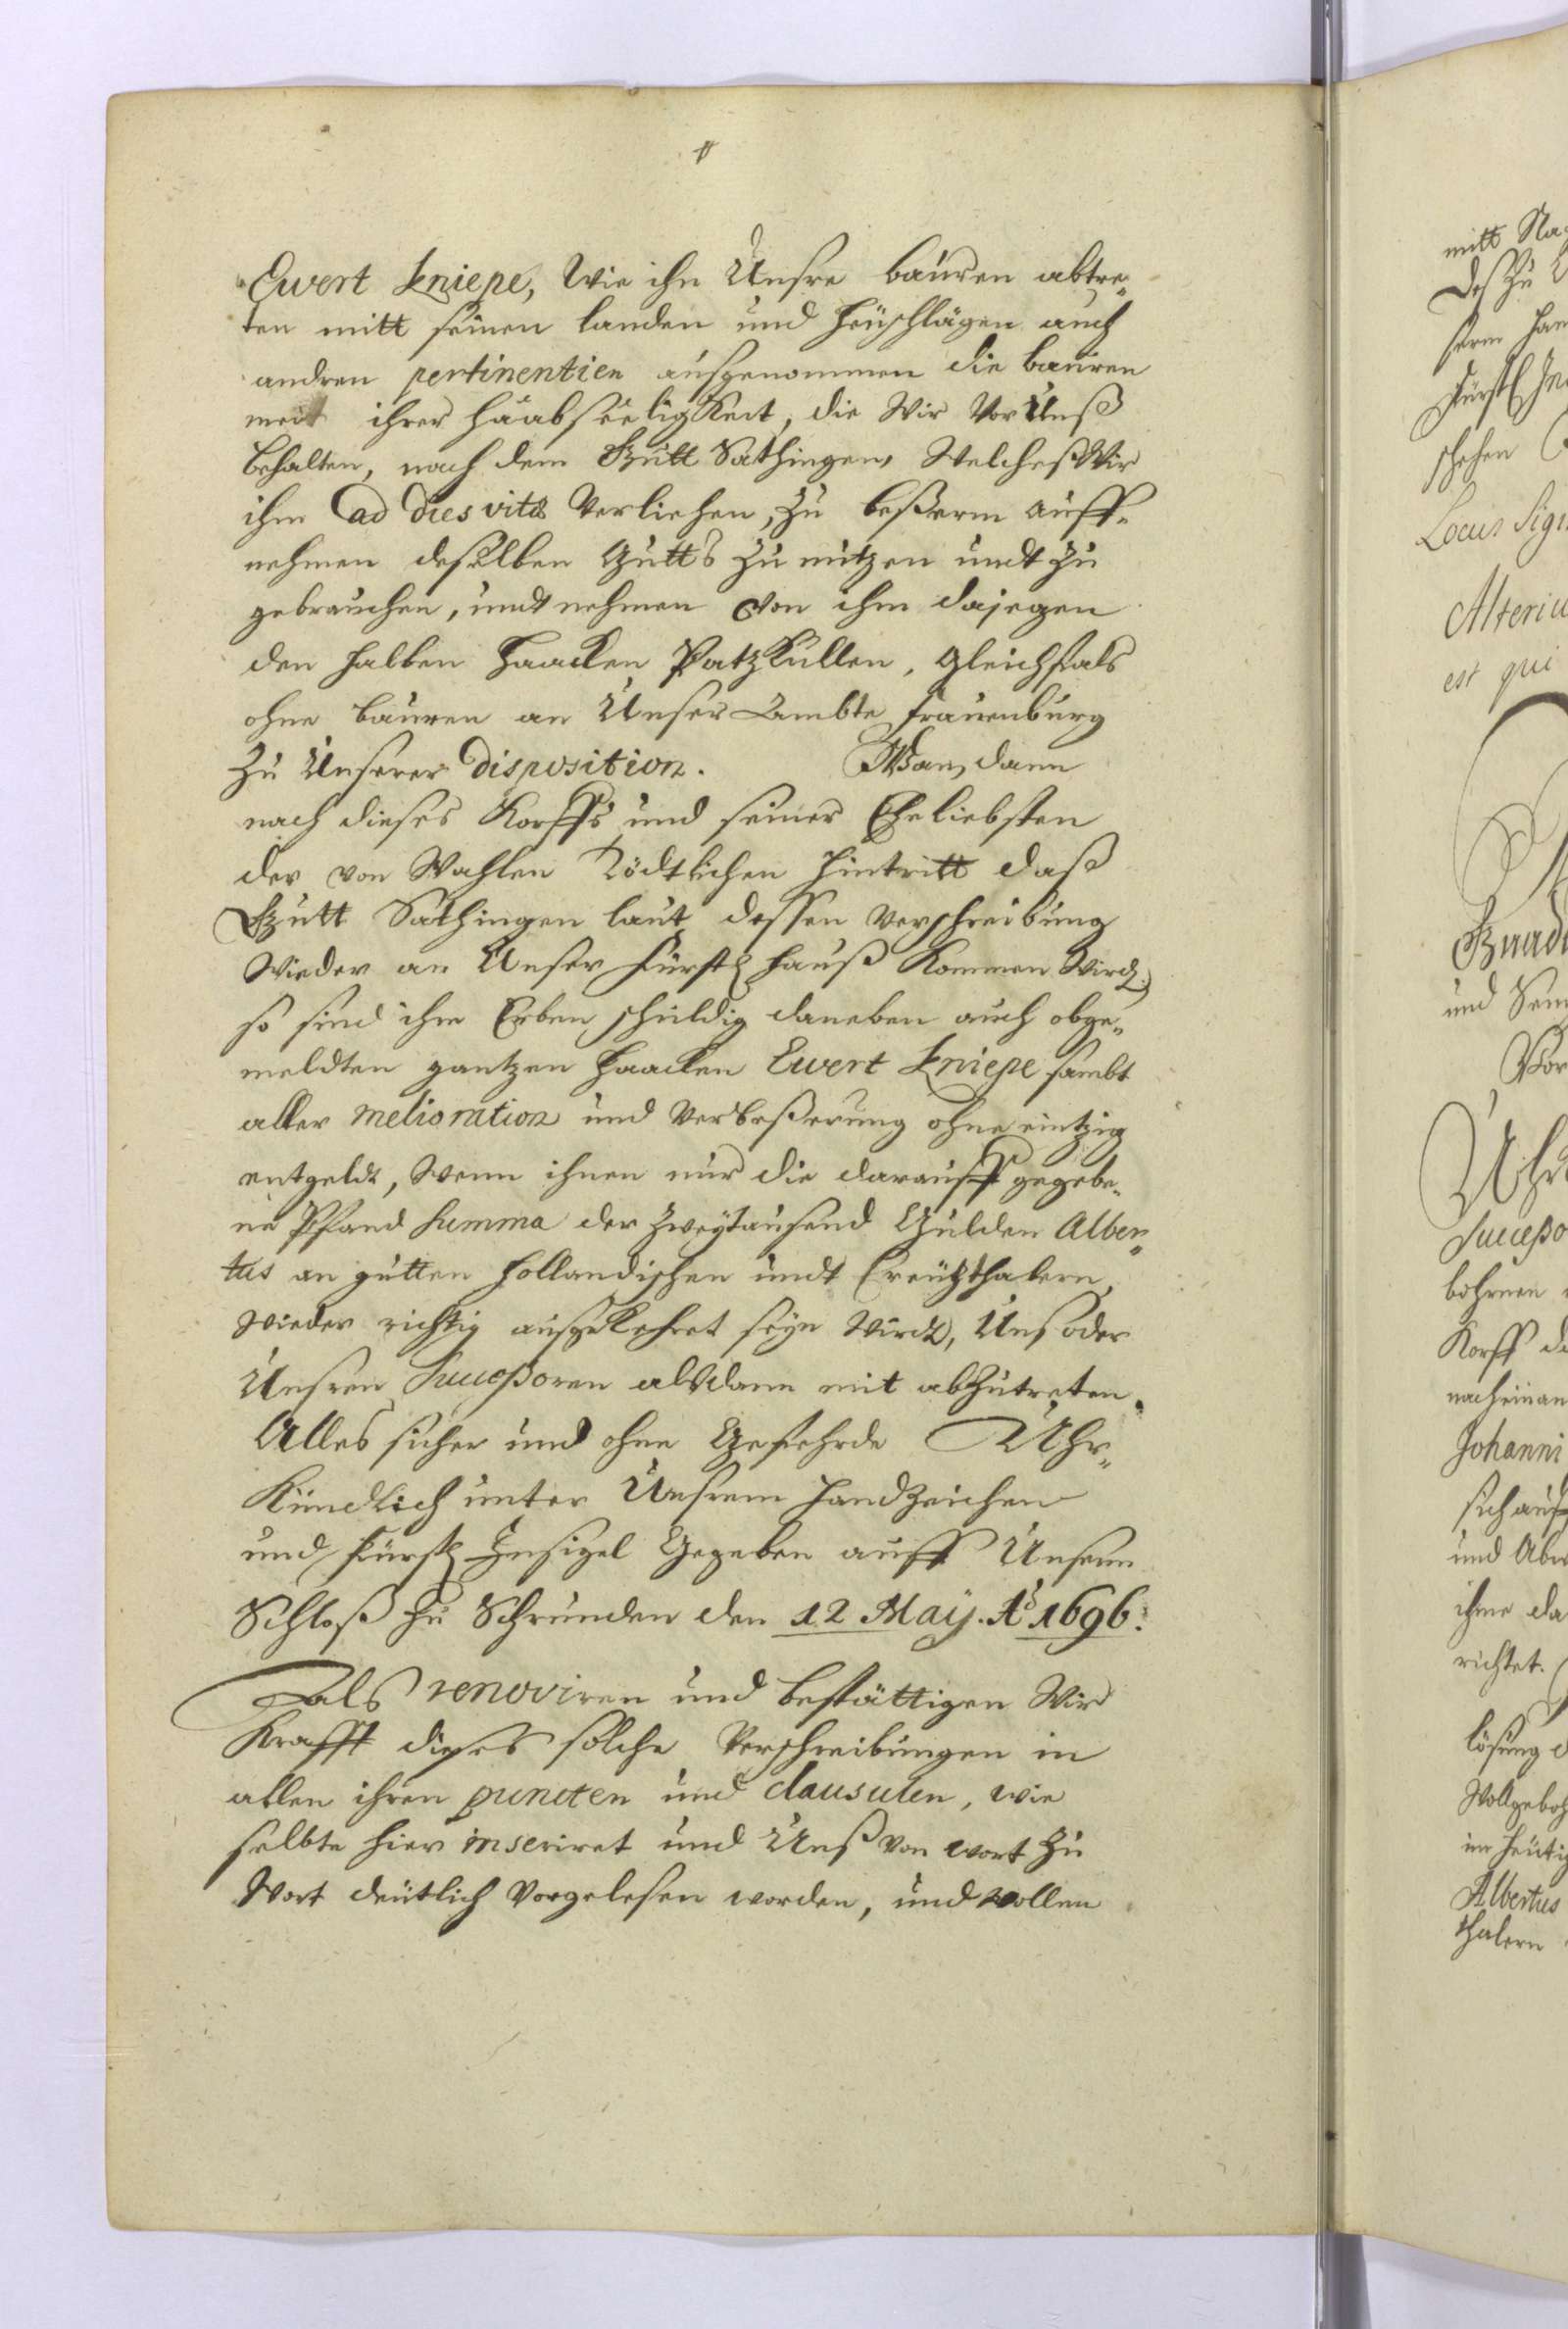 Ewert Kniepe, Wie ihn Unsre bauren abtre„
ten mitt seinen landen und Heuschlägen auch
andren pertinentien ausgenommen die bauren
mit ihrer Haabseeligkeit, die Wir Vor Unß
behalten, nach dem Gutt Sathingen, Welcheß Wir
ihm ad dies vitæ Verliehen, Zu beßerm auff„
nehmen deßelben Gutts Zu nutzen undt Zu
gebrauchen, undt nehmen von ihm dajegen
den halben Haacken Patzkullen, gleichfals
ohne bauren an Unser Ambte Frauenburg
Zu Unserer disposition. Wan, dann
nach dieses Korffs und seiner Eheliebsten
der von Wahlen Tödtlichen hintritt daß
Gutt Sathingen laut dessen Verschreibung
Wieder an Unser Fürstl Hauß Kommen Wird,
so sind ihre Erben schuldig daneben auch obge„
meldten gantzen Haacken Ewert Kniepe sambt
aller melioration und Verbeßerung ohne eintzig
entgeldt, Wenn ihnen nur die darauff gegebe„
ne Pfand Summa der Zweytausend Gulden Alber„
tus an gutten Hollandischen undt Creutzthalern
wieder richtig ausgekehret seyn Wird, Uns oder
Unsren Succeßoren alsdann mit abzutreten.
Alles sicher und ohne Gefehrde Uhr„
Kundlich unter Unsrem Handzeichen
und Fürstl Insigel Gegeben auff Unsrem
Schloß Zu Schrunden den 12 Maij. Ao 1696.
Als renoviren und bestättigen Wir
Krafft dieses solche Verschreibungen in
allen ihren puncten und clausulen, wie
selbte hier inseriret und Unß von wort Zu
Wort deutlich Vorgelesen worden, und wollen
mitt
Des Zu
Locus Sig
est qui
und
Succeßo
bohrnen
Korff
nach einan
Johanni
sich auff
und
ihme da
richtet.
lösung
Wollgeboh
im heutig
Albertus
thalern